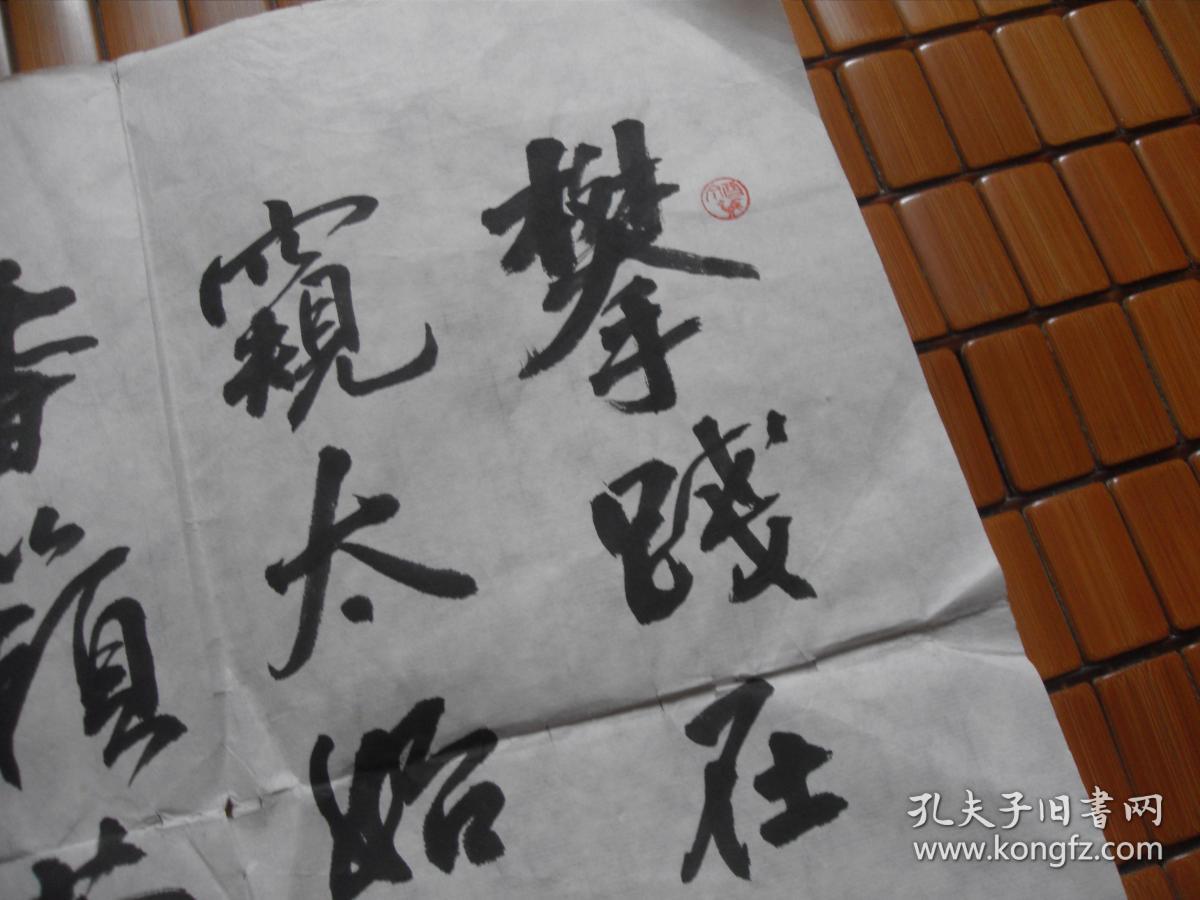 攀踐在
窺太始
香嶺
孔夫子旧書网
www.kongfz.com